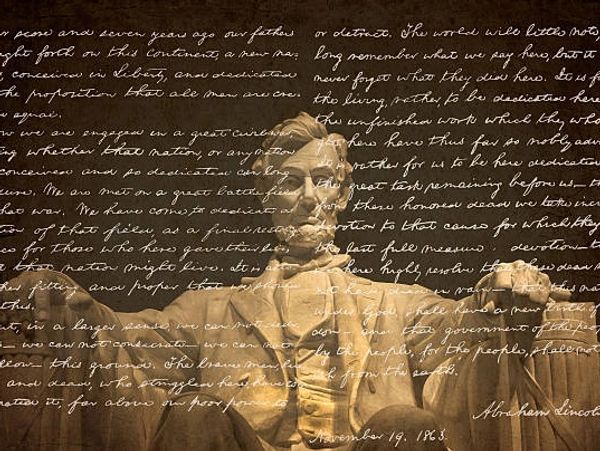 score and seven years ago our fathers
ght forth on this continent, a new na-
, conceived in Liberty, and dedicated
the proposition that all men are cre-
equal.
w we are engaged in a great civil war,
ing whether that nation, or any nation
conceived and so dedicated can long
ure. We are met on a great battle field
that war. We have come to dedicate a
of that field, as a final resting
ce for those who here gave their
that nation might live. It is
her fitting and proper that we should
this.
ut, in a larger sense, we can not
– we can not consecrate – we can not
llow – this ground. The brave men,
and dead, who struggled here, have
rated it, far above our poor power to
or detract. The world will little note,
long remember what we say here, but it
never forget what they did here. It is f
the living, rather, to be dedicated here
the unfinished work which they who
here have thus far so nobly adv
rather for us to be here dedicated
the great task remaining before us – t
from these honored dead we take incr
devotion to that cause for which they
the last full measure devotion – t
here highly resolve that these dead
not have died in vain – that this na
under God, shall have a new birth of
dom – and that government of the peo
by the people, for the people, shall not
from the earth.
Abraham Lincoln
November 19, 1863.